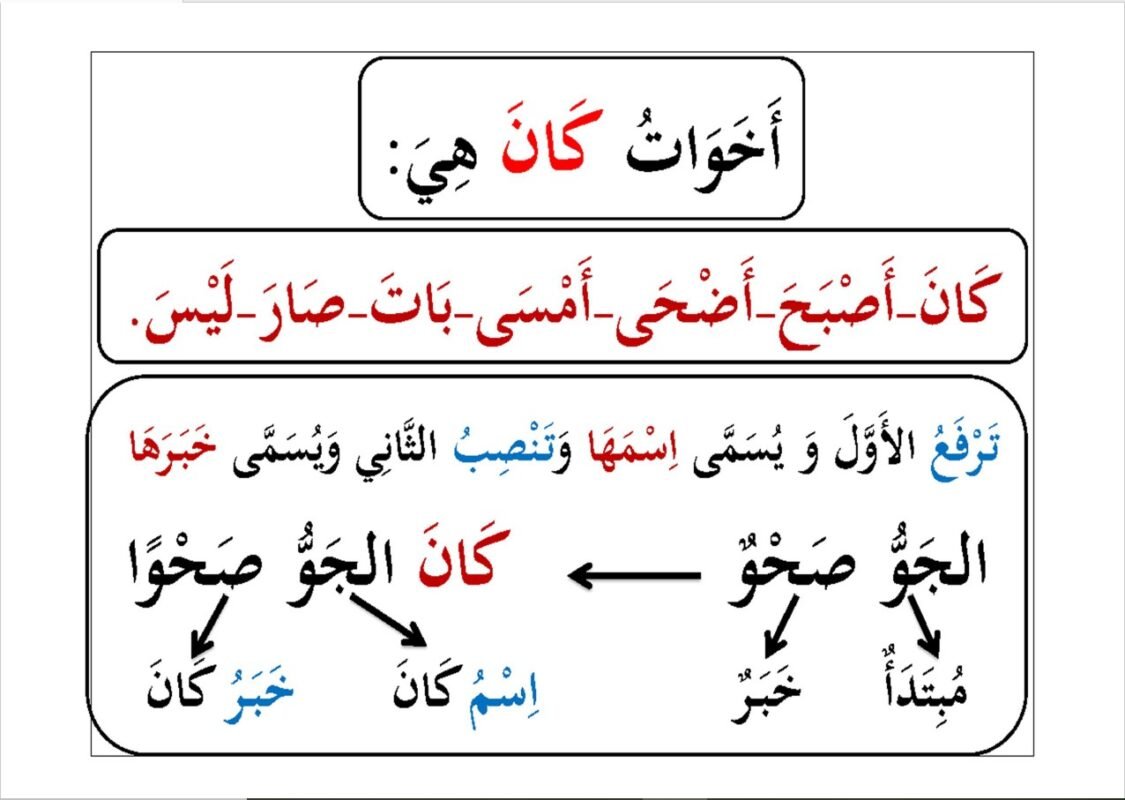 أَخَوَاتُ كَانَ هِيَ:
كَانَ-أَصْبَحَ-أَضْحَى-أَمْسَى-بَاتَ-صَارَ-لَيْسَ.
تَرْفَعُ الأَوَّلَ وَ يُسَمَّى اِسْمَهَا وَتَنْصِبُ الثَّانِي وَيُسَمَّى خَبَرَهَا
الجَوُّ صَحْوٌ كَانَ الجَوُّ صَحْوًا
مُبِتَدَأٌ خَبَرٌ اِسْمُ كَانَ خَبَرُ كَانَ